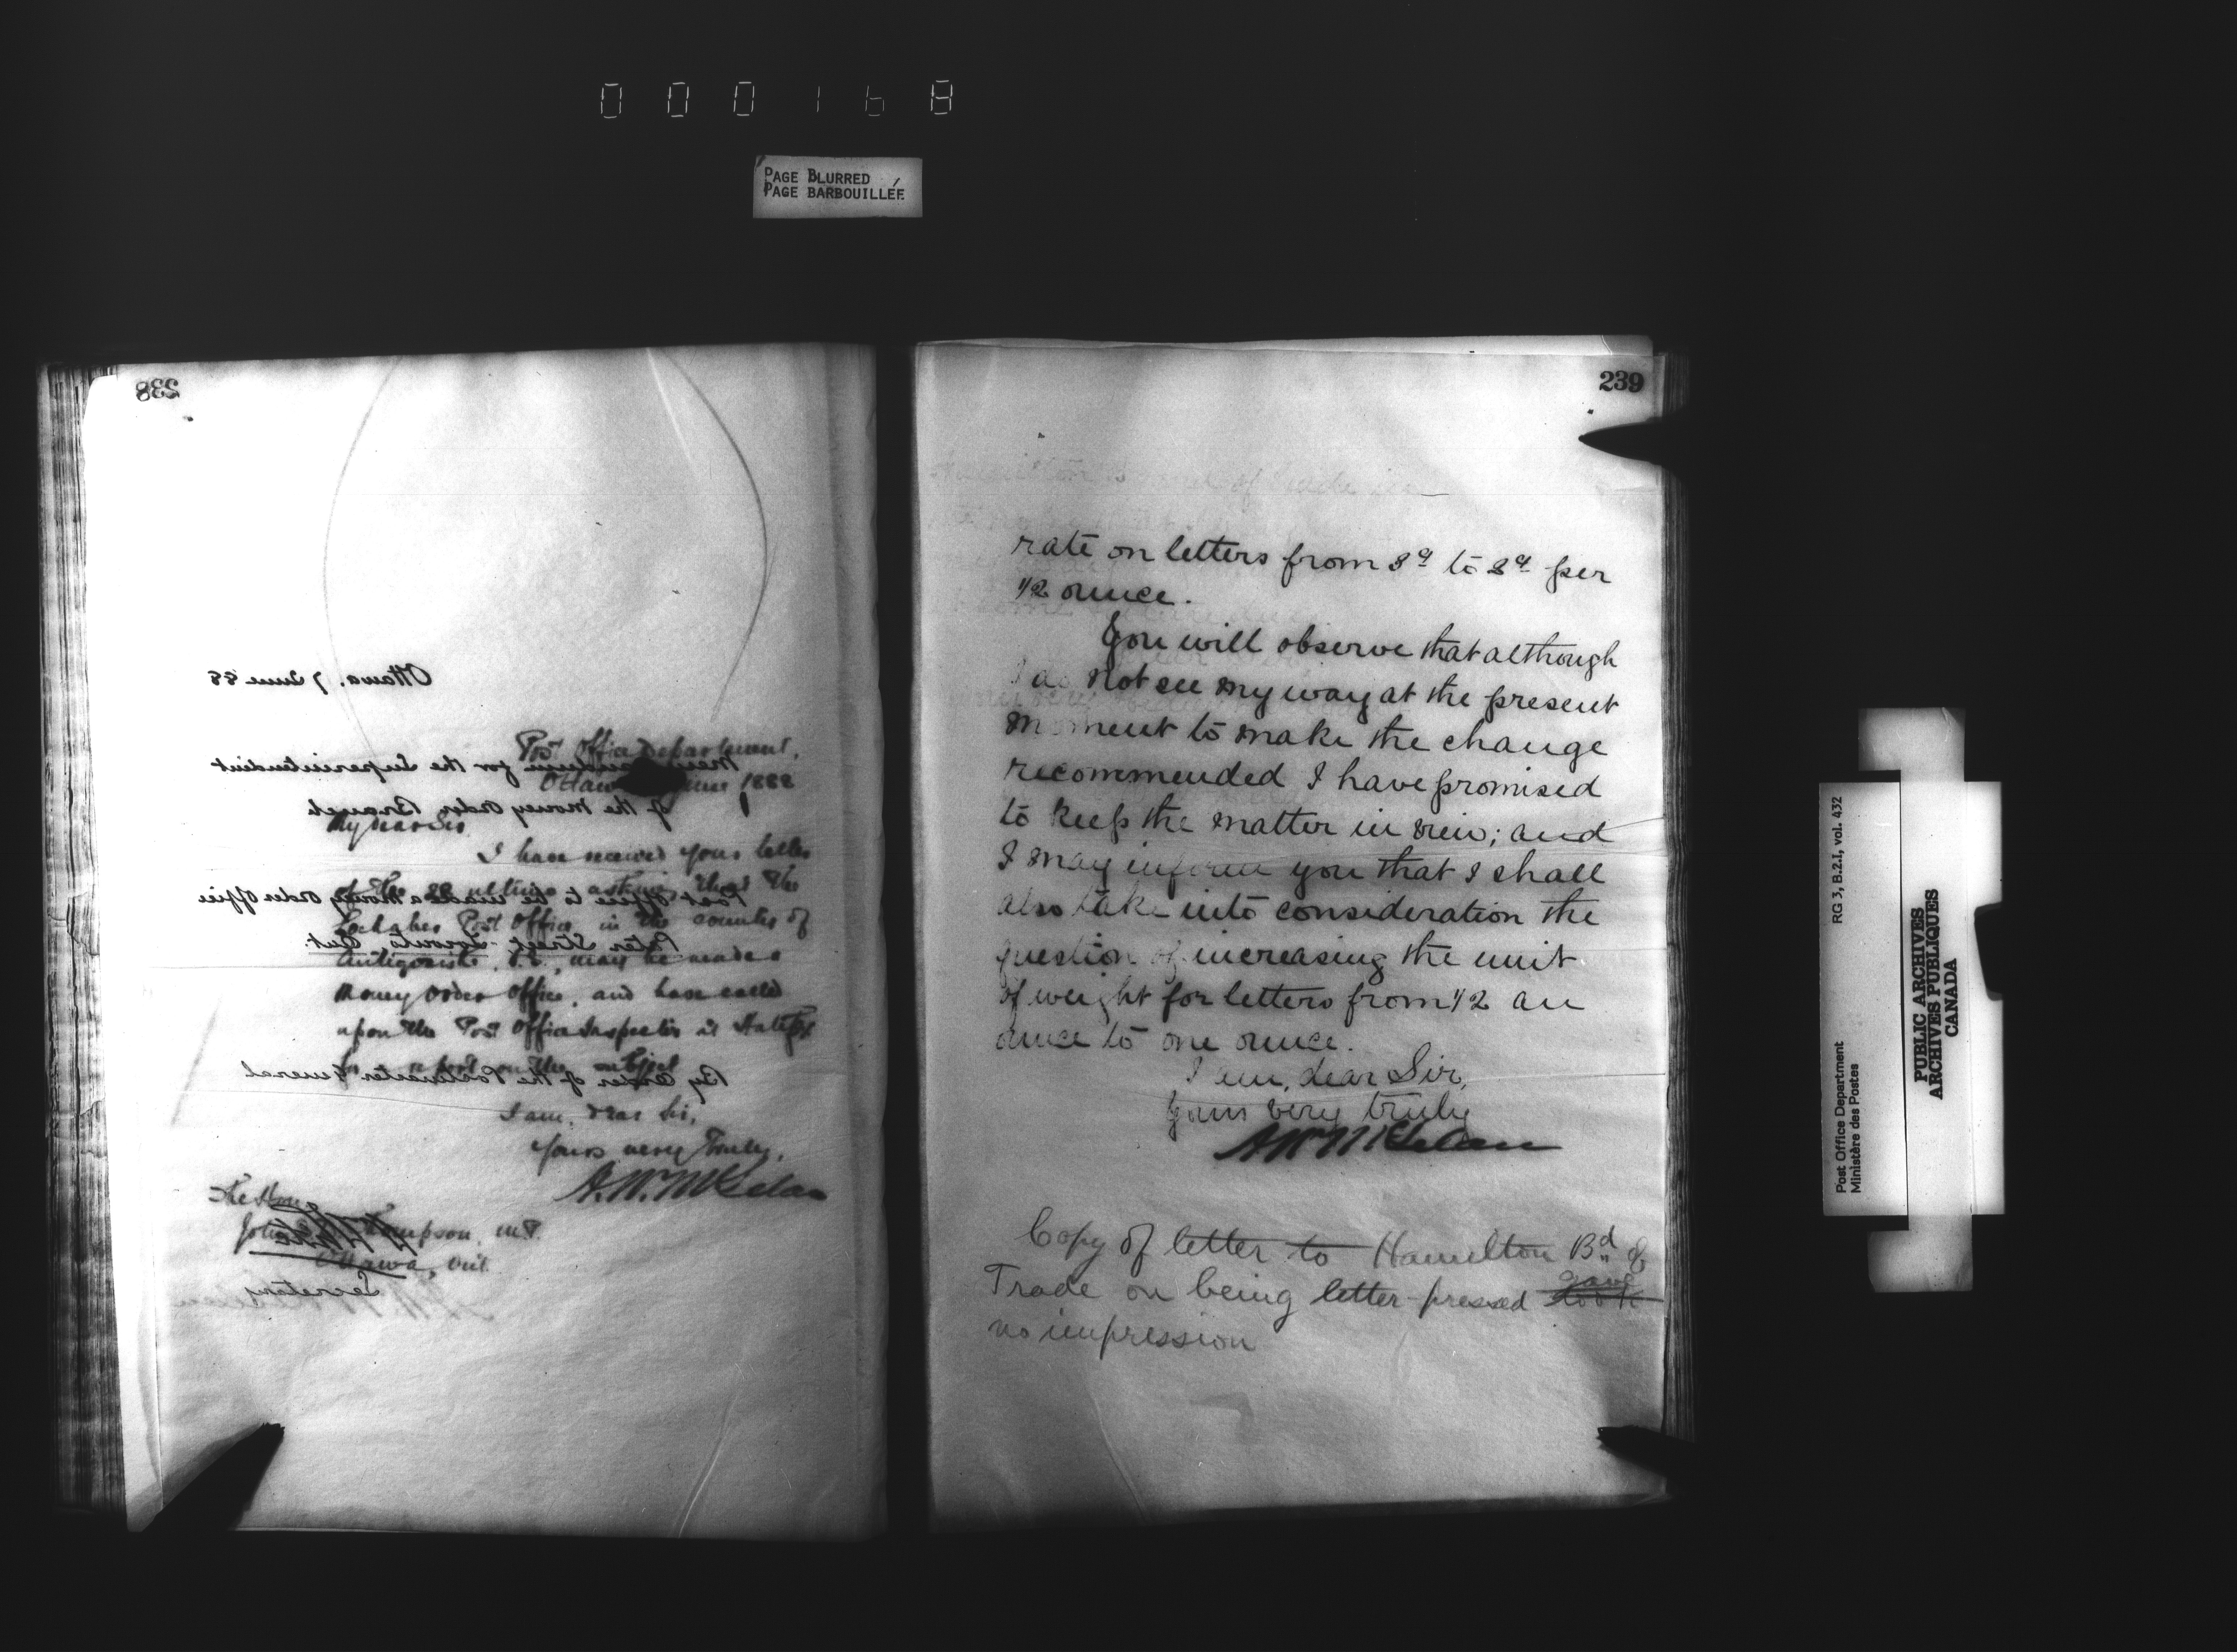 000168
PAGE BLURRED
PAGE BARBOUILLÉE
238
Ottawa. 7 June 88
Post Office Department,
Memorandum for the Superintendent
Ottawa June 1888
of the Money Order Branch
My dear Sir,
I have received your letter
of the 28 ultimo asking that the
Post Office to be made a Money Order Office
Lochaber Post Office in the counties of
Peter Street - Toronto Ont.
Antigonish, N.S., may be made a
Money Order Office, and have called
upon the Post Office Inspector at Halifax
for a report on the subject
By Order of the Postmaster General
I am, dear Sir,
Yours very truly,
A. W. McLelan
The Hon
John Thompson, M.P.
Ottawa, Ont.
Secretary
239
rate on letters from 3ȼ to 2ȼ per
1/2 ounce.
You will observe that although
I do not see my way at the present
moment to make the change
recommended I have promised
to keep the matter in view; and
I may inform you that I shall
also take into consideration the
question of increasing the unit
of weight for letters from 1/2 an
ounce to one ounce.
I am, dear Sir,
Yours very truly
A W McLelan
Copy of letter to Hamilton Bd of
Trade on being letter-pressed gave took
no impression
Post Office Department
Ministère des Postes
RG 3, B.2.I, vol. 432
PUBLIC ARCHIVES
ARCHIVES PUBLIQUES
CANADA